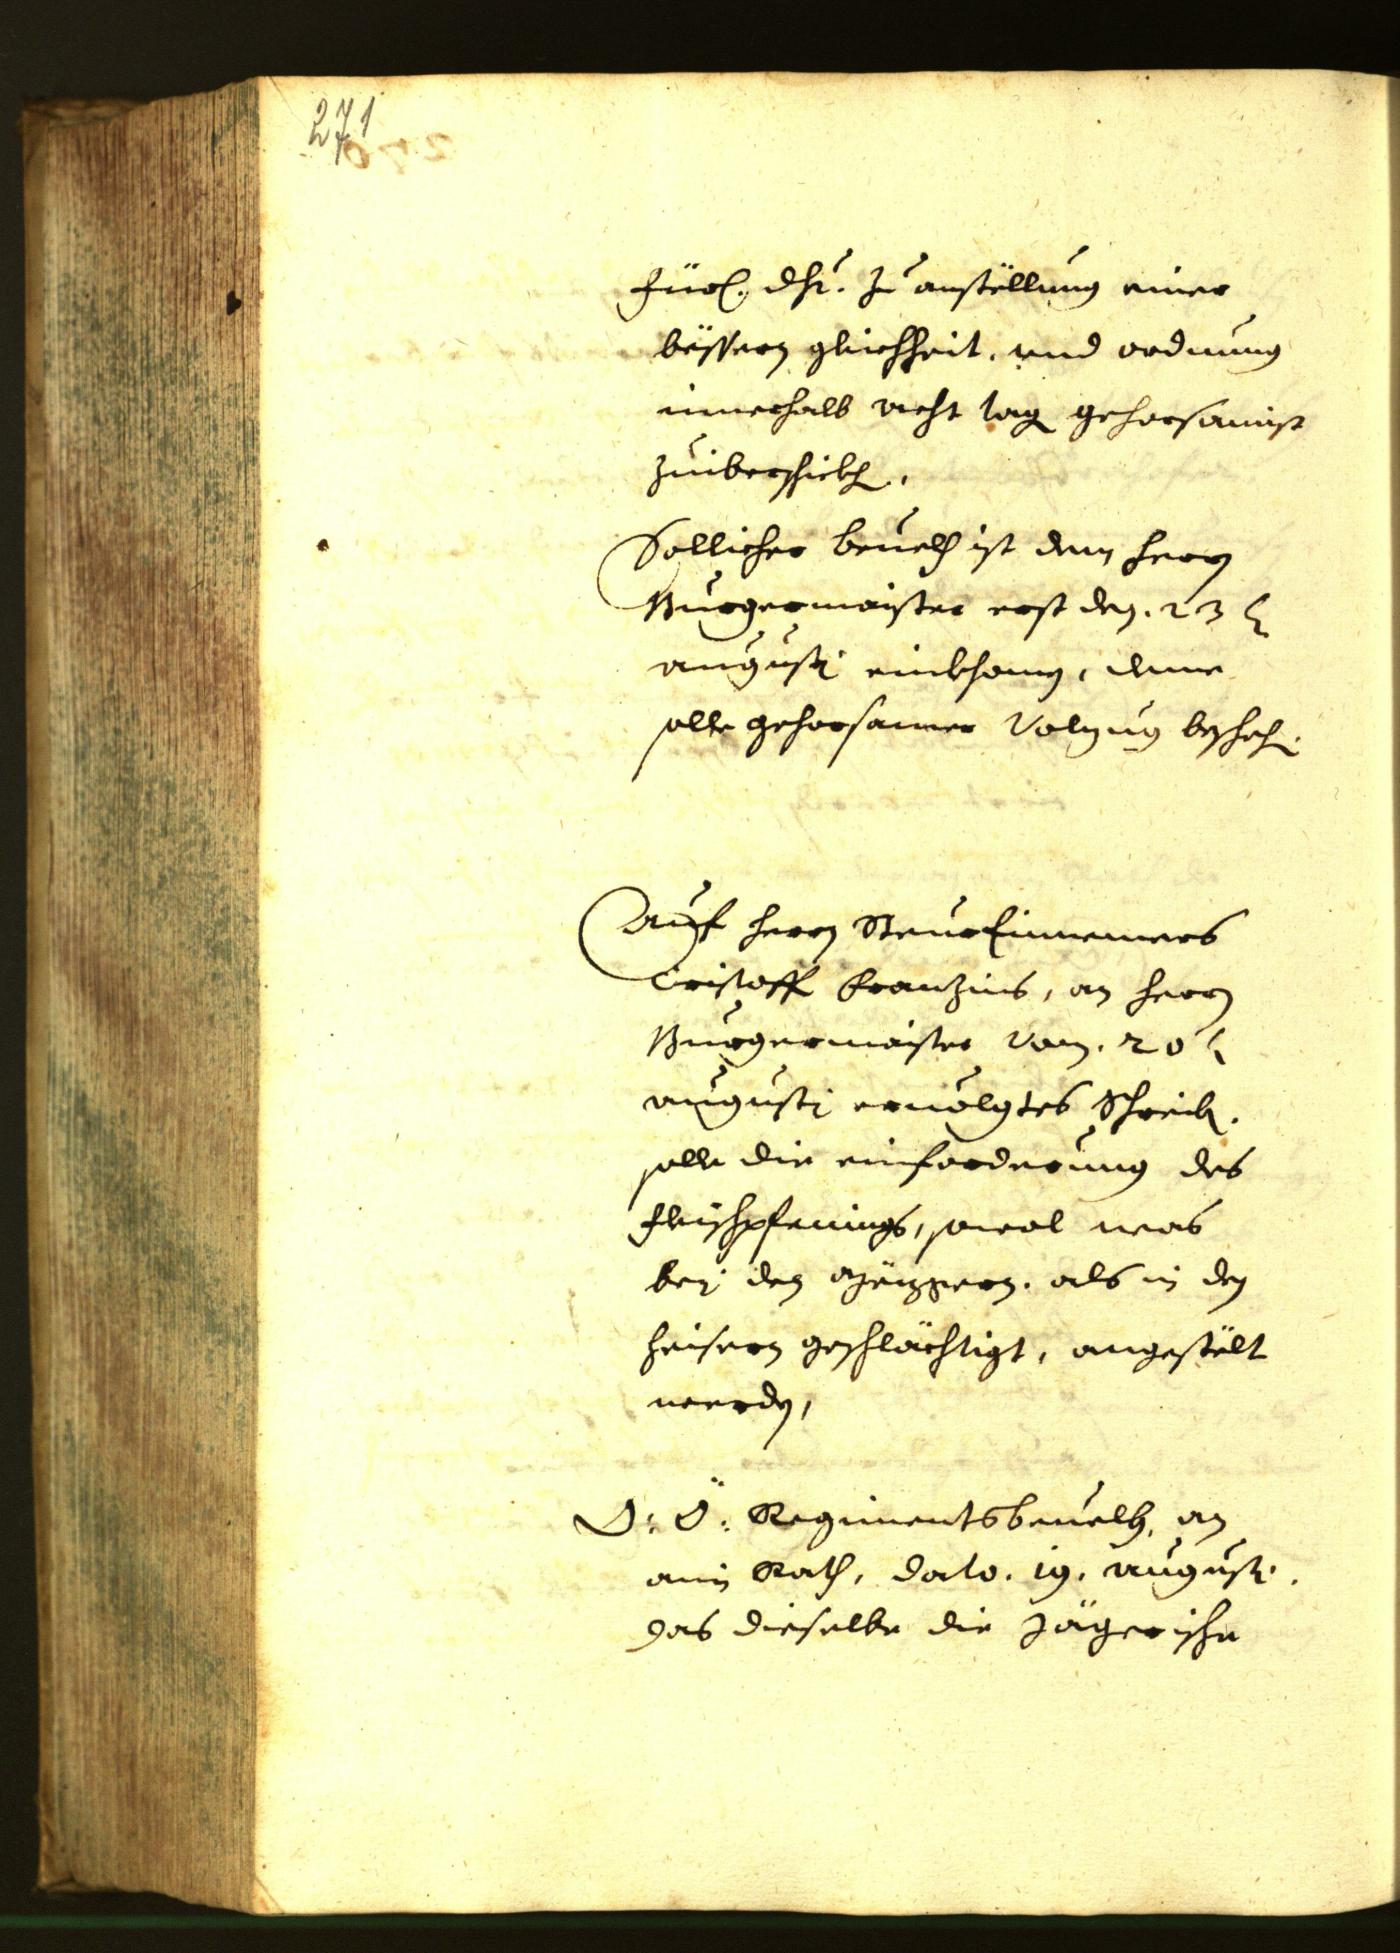 271
Fürl. dhr. Zu anstëllung einer
bëssern gleichheit, und ordnung
innerhalb acht tag gehorsamist
zuiberschickhen.
Sollicher beuelch ist dem herrn
Burgermaister erst den. 23
augusti einkhomen, deme
solle gehorsamer Volzug beschehen.
Auf herrn Steur Einnemers
Cristoff Franzius, an herrn
Burgermaister vom. 20
augusti eruolgtes Schreiben.
solle die einforderung des
fleischpfenings, sowol was
bej den Mëzgern, als in den
heisern geschlächtigt, angestëlt
werden,
O: Ö: Regimentsbeuelch, an
ain Rath, dato. 19. augusti.
das dieselbe die Jägerische